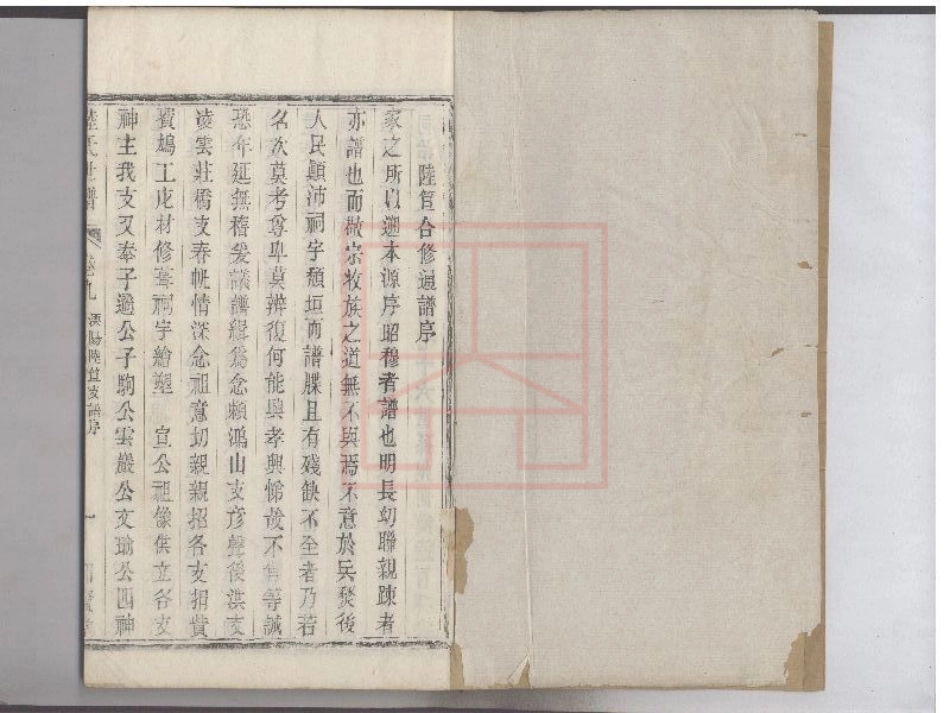 陸管合修通譜序
家之所以遡本源序昭穆者譜也明長幼聯親疎者
亦譜也而敬宗收族之道無不與焉不意於兵燹後
人民顛沛祠宇頹垣而譜牒且有殘缺不全者乃若
名次莫考尊卑莫辨復何能興孝興悌哉不肖等誠
恐年延無稽爰議譜緝爲念賴鴻山支彥聲後淇支
凌雲莊橋支春帆情深念祖意切親親招各支捐貲
賛鳩工庀材修葺祠宇繪塑 宣公祖像供立各支
神主我支又奉子遹公子駒公雲巖公文瑜公四神
陸氏世譜 卷九 溧陽陸管支譜序 一